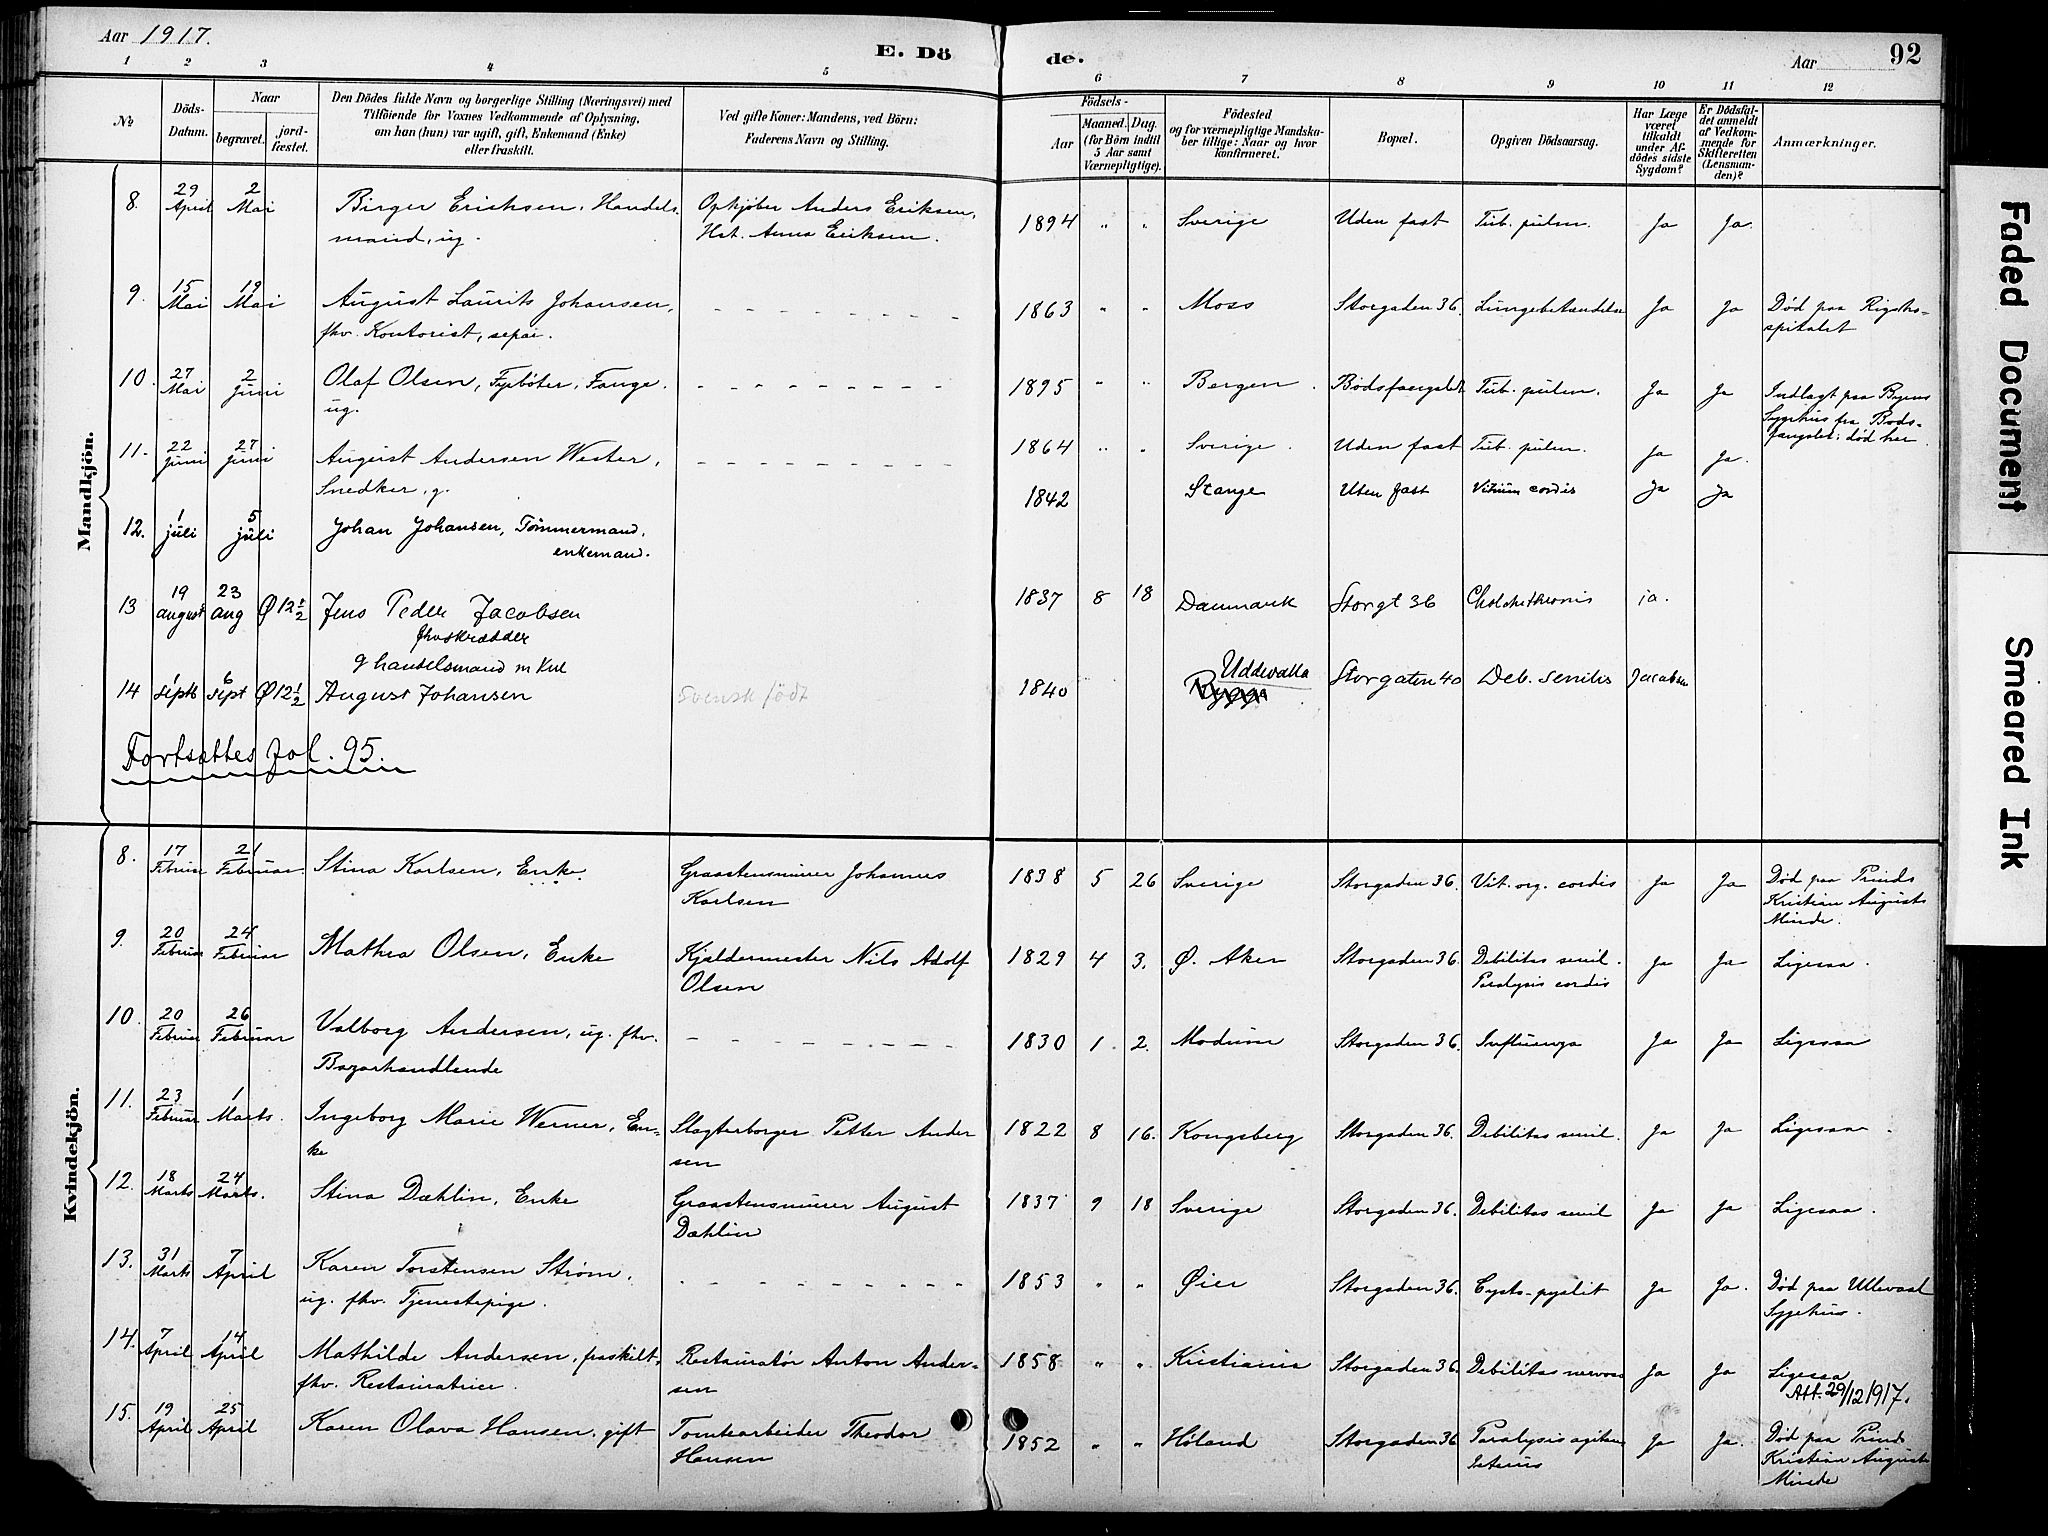 Aar 1917. E. Dö de. Aar 92
1 2 3 4 5 6 7 8 9 10 11 12
No
Döds-Datum.
Naar
begravet.
jord-fæstet.
Den Dödes fulde Navn og borgerlige Stilling (Næringsvei) med
Tilföiende for Voxnes Vedkommende af Oplysning,
om han (hun) var ugift, gift, Enkemand (Enke)
eller fraskilt.
Ved gifte Koner: Mandens, ved Börn:
Faderens Navn og Stilling.
Födsels-
Aar
Maaned. Dag.
(for Börn indtil
5 Aar samt
Værnepligtige).
Födested
og for værnepligtige Mandska-
ber tillige: Naar og hvor
konfirmeret.
Bopæl.
Opgiven Dödsaarsag.
Har Læge
været
tilkaldt
under Af-
dödes sidste
Sygdom?
Er Dödsfal-
det anmeldt
af Vedkom-
mende for
Skifteretten
(Lensman-
den)?
Anmærkninger.
Mandkjön.
8. 29 April 2 Mai Birger Eriksen, Handels- Opkjøber Anders Eriksen, 1894 " " Sverige Uden fast Tub. pulm. Ja Ja.
mand, ug. Hst. Anna Eriksen.
9. 15 Mai 19 Mai August Laurits Johansen, 1863 " " Moss Storgaden 36. Lungebetændelse Ja Ja Død paa Rigsho-
fhv. Kontorist, separ. spitalet
10. 27 Mai 2 Juni Olaf Olsen, Fyrbøter, Fange. 1895 " " Bergen. Bodsfængslet Tub. pulm. Ja Ja Indlagt paa Byens
ug. Sygehus fra Bods-
fængslet; død her.
11. 22 Juni 27 Juni August Andersen Wester, 1864 " " Sverige. Uden fast Tub. pulm. Ja Ja.
Snedker, g.
12. 1 juli 5 juli Johan Johansen, Tömmermand, 1842 Stange Uten fast Vitium cordis Ja Ja
enkemand.
13 19 august 23 aug Ø 12½ Jens Peder Jacobsen 1837 8 18 Danmark Storgt 36 ja.
fhv skrædder
g handelsmand m Kul
14 1 septb 6 sept Ø 12½ August Johansen Svensk født 1840 Uddevalla Storgaten 40 Deb. senilis Jacobsen
Fortsættes fol. 95.
Kvindekjön.
8. 17 Februar 21 Februar Stina Karlsen, Enke Graastensmurer Johannes 1838 5 26 Sverige Storgaden 36. Vit. org. cordis Ja Ja Død paa Prinds
Karlsen Kristian Augusts
Minde.
9. 20 Februar 24 Februar Mathea Olsen, Enke Kjældermester Nils Adolf 1829 4 3. Ø. Aker Storgaden 36. Debilitas senil. Ja Ja Ligesaa.
Olsen Paralysis cordis
10. 20 Februar 26 Februar Valborg Andersen, ug. fhv. 1830 1. 2. Modum Storgaden 36. Influenza Ja Ja Ligesaa
Bazarhandlende
11. 23 Februar 1 Marts. Ingeborg Marie Werner, En- Slagterborger Petter Ander 1822 8 16. Kongsberg Storgaden 36. Debilitas senil. Ja Ja Ligesaa.
ke sen
12. 18 Marts 24 Marts. Stina Dæhlin, Enke Graastensmurer August 1837 9 18 Sverige Storgaden 36. Debilitas senil Ja Ja Ligesaa.
Dæhlin
13. 31 Marts 7 April Karen Torstensen Strøm, 1853 " " Øier Storgaden 36. Cysto-pyelit Ja Ja. Død paa Ullevaal
ug. fhv. Tjenestepige. Sygehus.
14. 7 April 14 April Mathilde Andersen, fraskilt, Restauratør Anton Ander- 1858 " " Kristiania Storgaden 36. Debilitas nervosa Ja Ja Ligesaa
fhv. Restauratrice. sen Att. 29/12 1917.
15. 19 April 25 April Karen Olava Hansen, gift Tomtearbeider Theodor 1852 " " Høland Storgaden 36 Paralysis agitans Ja Ja. Død paa Prinds
Hansen Kristian Augusts
Minde
Faded Document
Smeared Ink